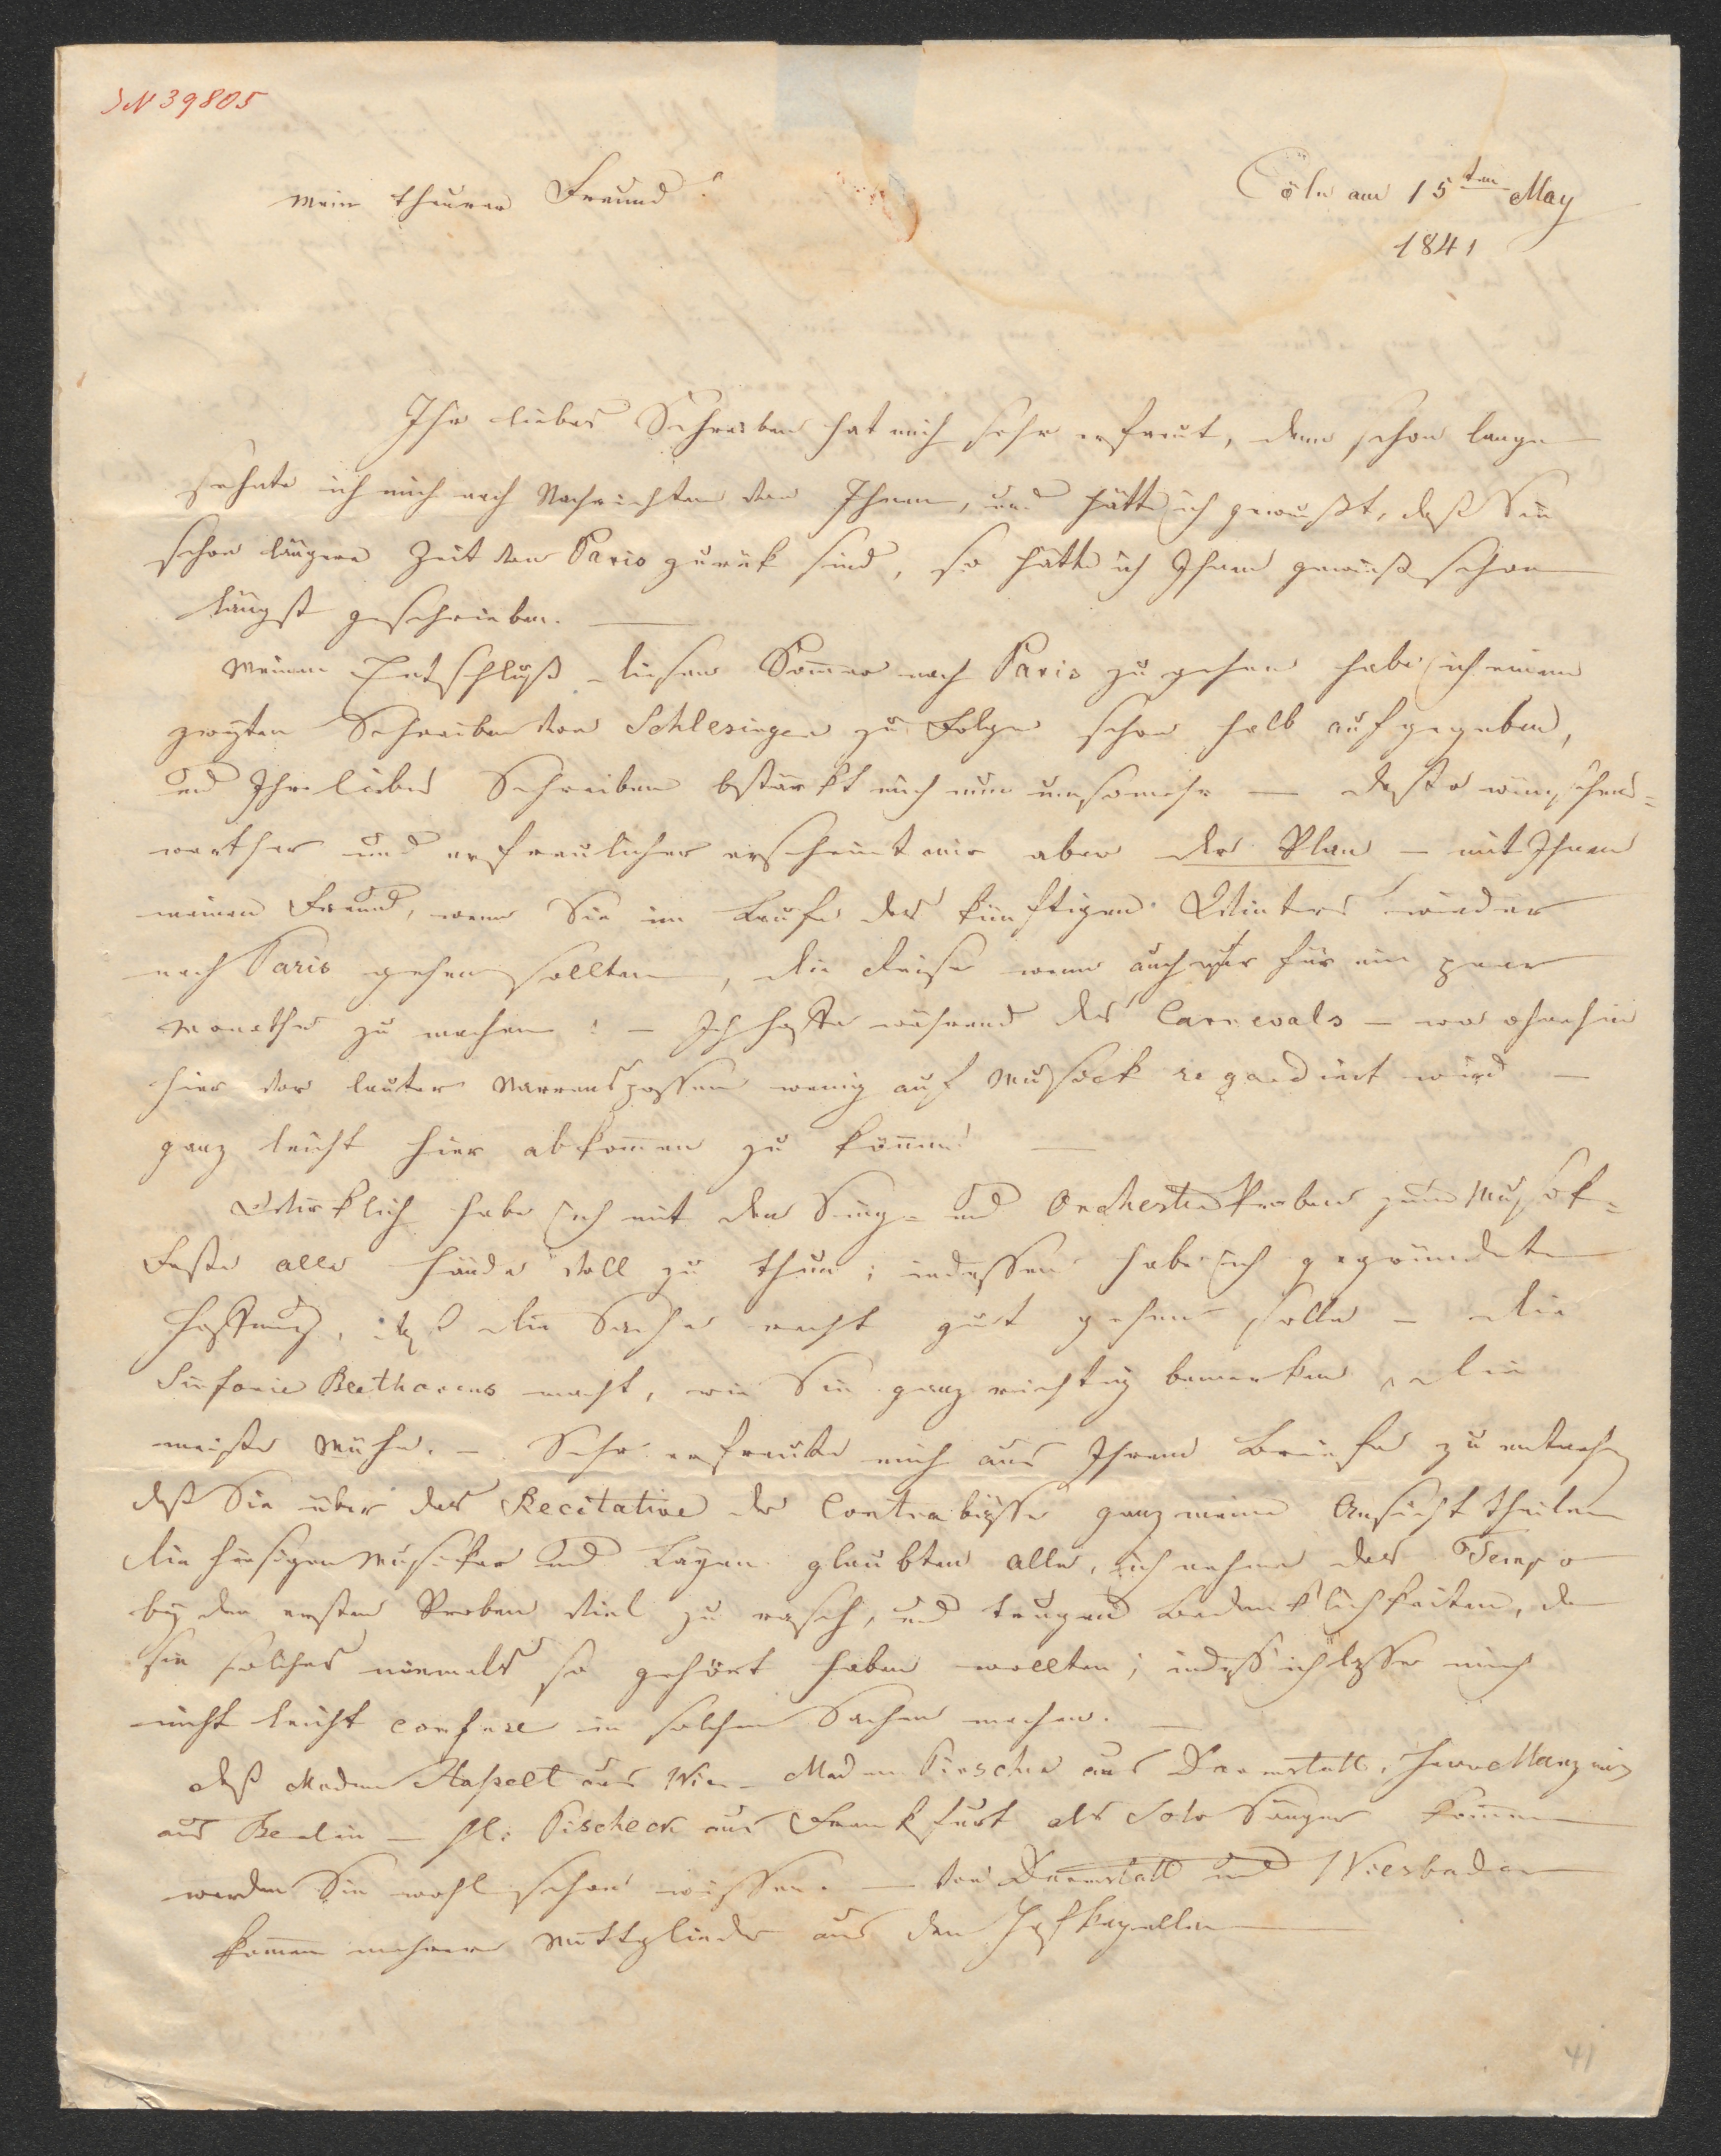 JN 39805
Mein theurer Freund!
Cöln am 15ten May
1841
Ihr liebes Schreiben hat mich sehr erfreut, denn schon lange
sehnte ich mich nach Nachrichten von Ihnen, und hätte ich gewußt, daß Sie
schon längere Zeit von Paris zurük sind, so hätte ich Ihnen gewiß schon
längst geschrieben. —
Meinen Entschluß diesen Sommer nach Paris zu gehen habe ich einem
zweyten Schreiben von Schlesinger zu Folge schon halb aufgegeben,
und Ihr liebes Schreiben bestärkt mich nun umsomehr — desto wünschens=
werther und erfreulicher erscheint mir aber der Plan — mit Ihnen
meinen Freund, wenn Sie im Laufe des künftigen Winters wieder
nach Paris gehen sollten, die Reise wenn auch nur für ein paar
Monathe zu machen! — Ich hoffe während des Carnevals — wo ohnehin
hier vor lauter Narrenspossen wenig auf Musick regardirt wird —
ganz leicht hier abkommen zu können! —
Wirklich habe ich mit den Sing= und Orchester Proben zum Musik=
Feste alle Hände voll zu thun; indessen habe ich gegründete
Hoffnung, daß die Sache recht gut gehen solle — die
Sinfonie Beethovens macht, wie Sie ganz richtig bemerken, die
meiste Mühe. — Sehr erfreute mich aus Ihrem Briefe zu entnehmen
daß Sie über das Recitative der Contrabässe ganz meine Ansicht theilen
die hiesigen Musiker und Layen glaubten alle, ich nehme das Tempo
bey den ersten Proben viel zu rasch, und trugen Bedenklichkeiten, da
sie solches niemals so gehört haben wollten; indeß ich lasse mich
nicht leicht confuse in solchen Sachen machen. —
daß Madam Hasselt aus Wien — Madam Pirscher aus Darmstatt, Herr Mantius
aus Berlin — H: Pischeck aus Frankfurt als Solo Sänger kommen
werden Sie wohl schon wissen. — Von Darmstatt und Wiesbaden
kommen mehrere Mittglieder aus den Hofkapellen —
41